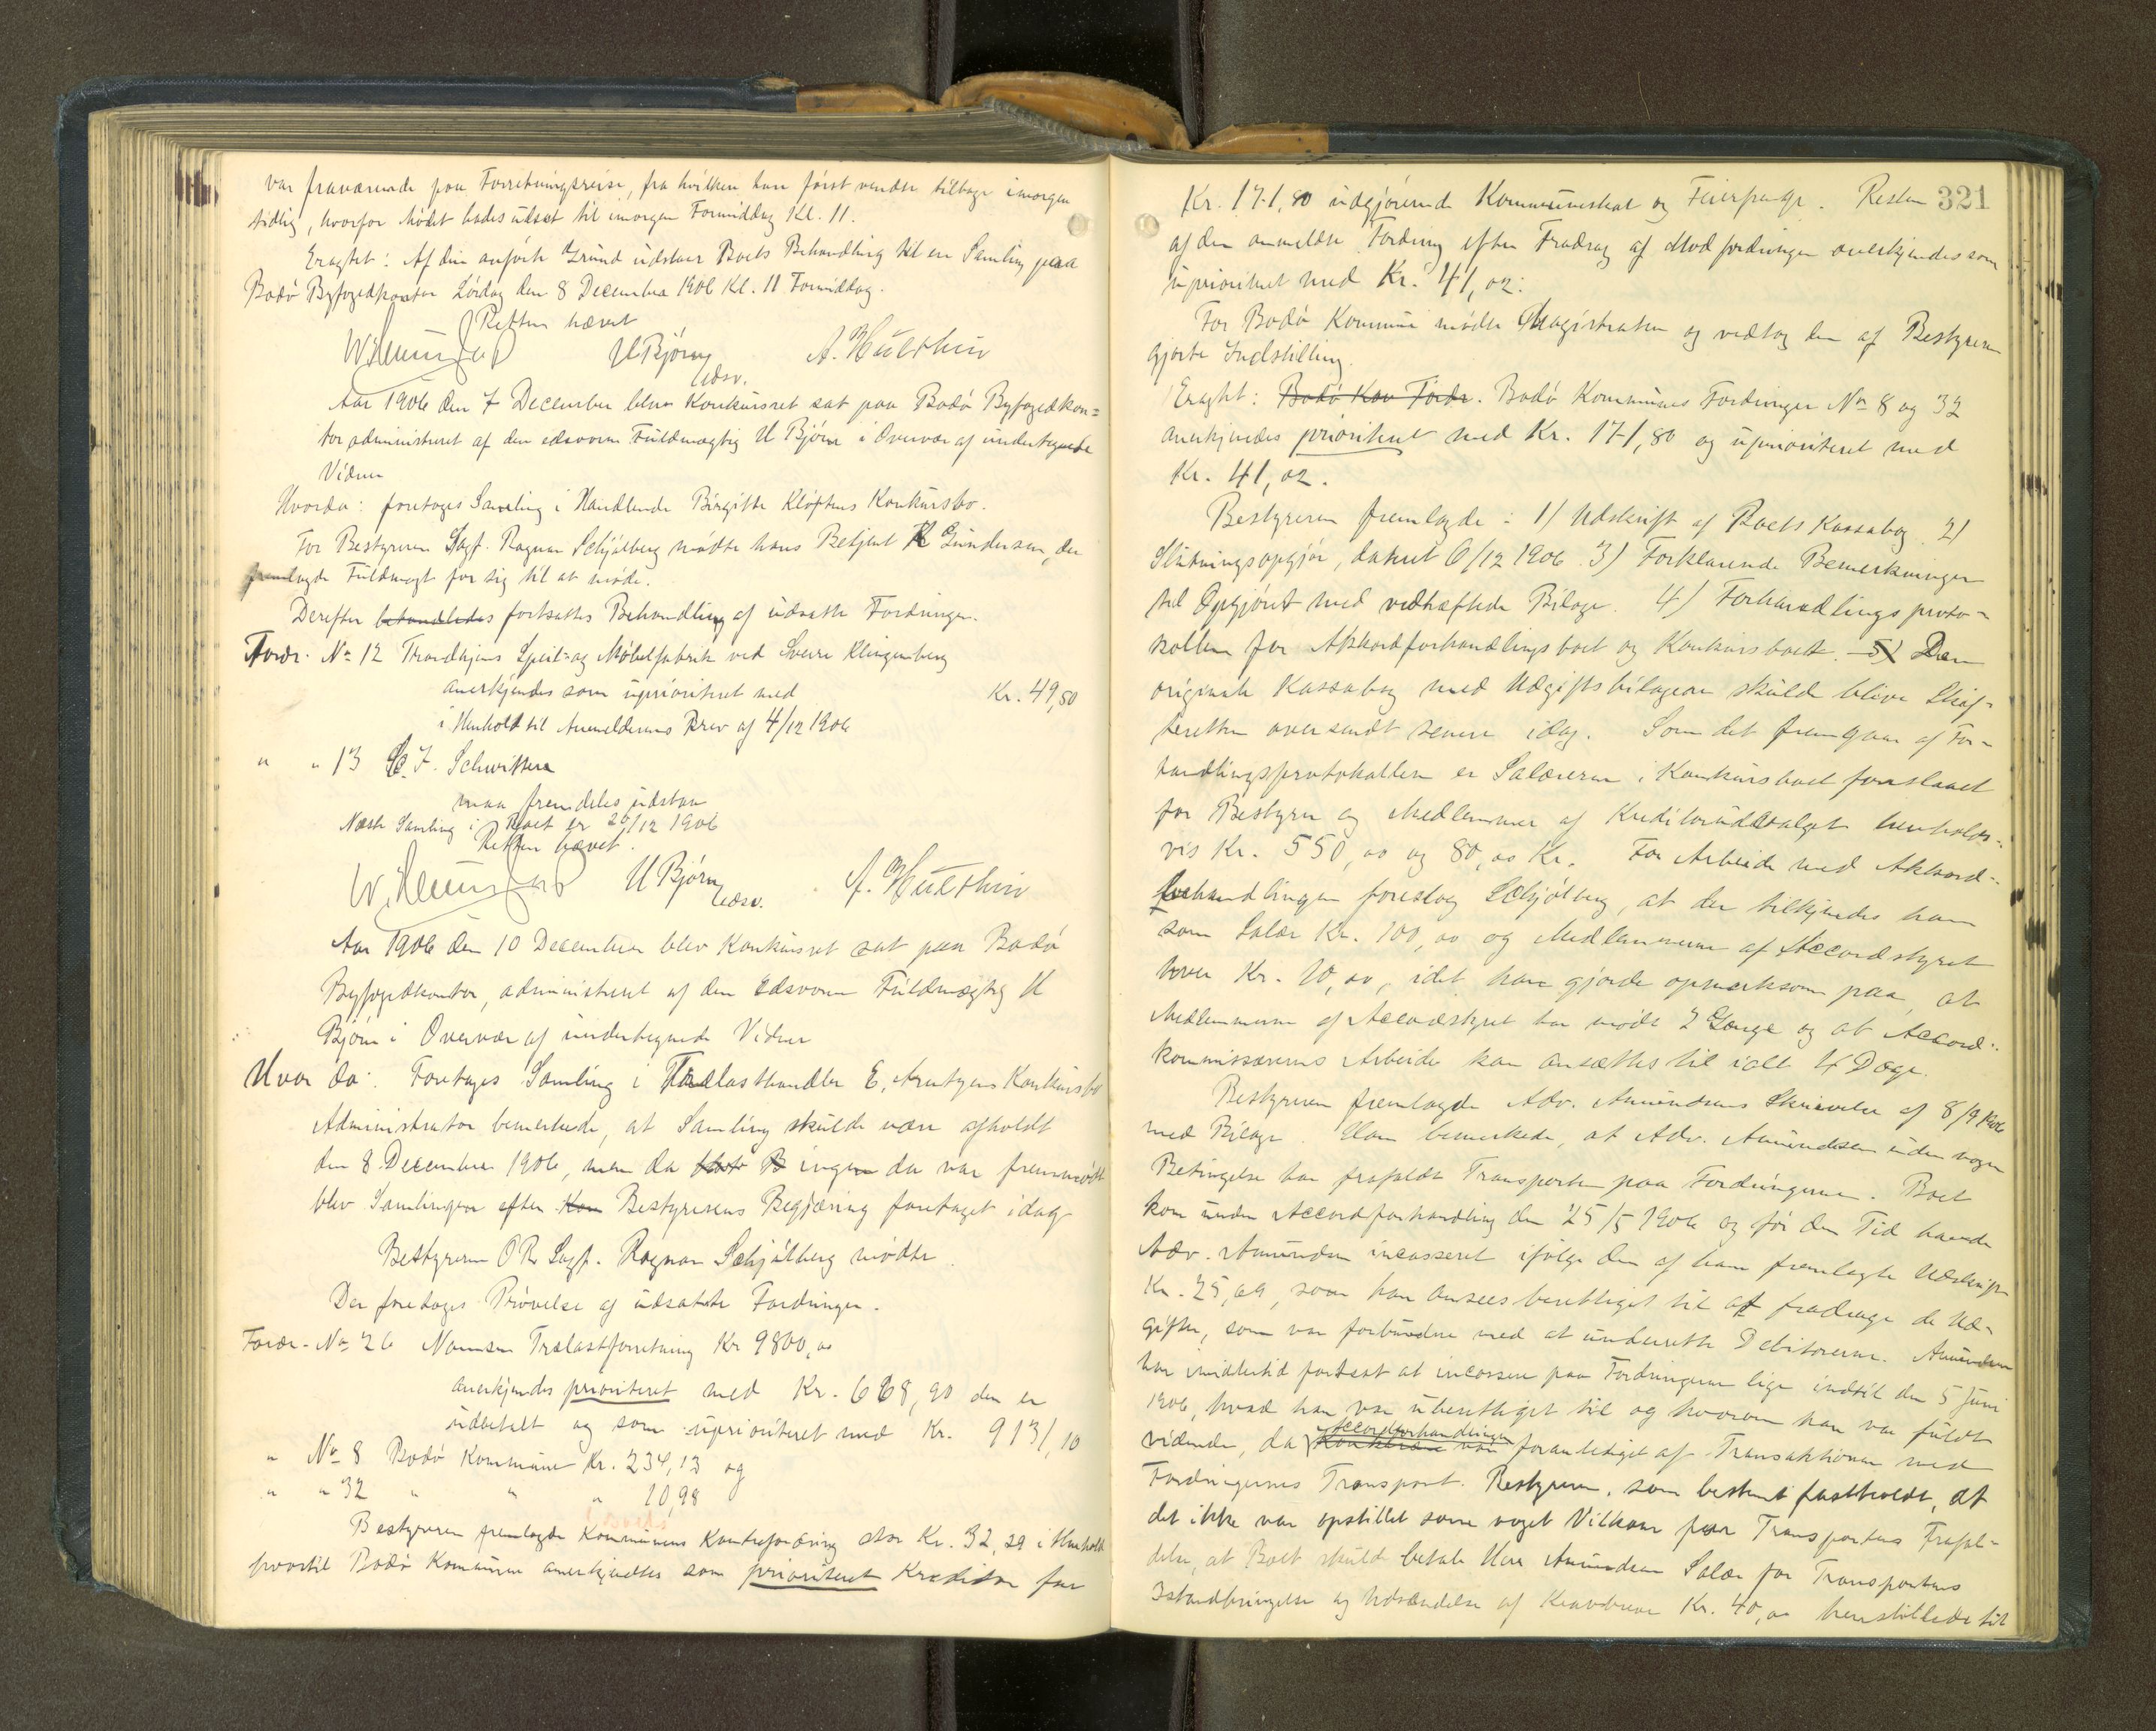 var fraværende paa Forretningsreise, fra hvilken han først vender tilbage imorgen
tidlig, hvorfor Mødet bades udsat til imorgen Formiddag Kl. 11.
Eragtet: Af den anførte Grund udstaar Boets Behandling til en Samling paa
Bodø Byfogedkontor Lørdag den 8 December 1906 Kl. 11 Formiddag.
Retten hævet
U Bjørn
Edsv.
A. Hulthin
Aar 1906 den 7 December blev Konkursret sat paa Bodø Byfogedkon=
tor administreret af den edsvorne Fuldmægtig U Bjørn i Overvær af undertegnede
Vidner
Hvorda: foretoges Samling i Handlende Birgitte Kløftens Konkursbo.
For Bestyreren Sagf. Ragnar Schjølberg mødte hans Betjent K Gundersen, der
fremlagde Fuldmagt for sig til at møde.
Derefter behandledes fortsattes Behandling af udsatte Fordringer.
Fordr. No 12 Trondhjems Speil- og Møbelfabrik ved Sverre Klingenberg
anerkjendes som uprioriteret med Kr. 49,50
i Henhold til Anmelderens Brev af 4/12 1906
" " 13 C. F. Schwitters
maa fremdeles udstaa
Næste Samling i Boet er 20/12 1906
Retten hævet.
U Bjørn
Edsv.
A. Hulthin
Aar 1906 den 10 December blev Konkursret sat paa Bodø
Byfogedkontor, administreret af den Edsvorne Fuldmægtig U
Bjørn i Overvær af undertegnede Vidner
Hvor da: Foretoges Samling i Trælasthandler E. Arntzens Konkursbo
Administrator bemerkede, at Samling skulde være afholdt
den 8 December 1906, men da ingen da var fremmødt
blev Samlingen efter Kon Bestyrerens Begjæring foretaget idag
Bestyreren O R Sagf. Ragnar Schjølberg mødte.
Der foretoges Prøvelse af udsatte Fordringer.
Fordr. No 26 Namsen Trælastforretning Kr 9800,00
anerkjendes prioriteret med Kr. 668,90 den er
udbetalt og som uprioriteret med Kr. 9131,10
" No 8 Bodø Kommune Kr. 234,13 og
" " 32 " " " 10,98
Bestyreren fremlagde Kommunens Kontrafordring stor Kr. 32,29 i Henhold
hvortil Bodø Kommune anerkjendtes som prioriteret Kreditor for
321
Kr. 171,80 udgjørende Kommuneskat og Feierpenge. Resten
af den anmeldte Fordring efter Fradrag af Modfordringen anerkjendes som
uprioriteret med Kr. 41,02.
For Bodø Kommune mødte Magistraten og vedtog den af Bestyreren
gjorte Indstilling.
Eragtet: Bodø Kom Fordr. Bodø Kommunes Fordringer No 8 og 32
anerkjendes prioriteret med Kr. 171,80 og uprioriteret med
Kr. 41,02.
Bestyreren fremlagde: 1/ Udskrift af Boets Kassabog. 2/
Slutningsopgjør, dateret 6/12 1906. 3) Forklarende Bemerkninger
til Opgjøret med vedhæftede Bilage. 4/ Forhandlingsproto-
kollen for Akkordforhandlingsboet og Konkursboet. 5) Den
originale Kassabog med Udgiftsbilagene skulde blive Skif-
teretten oversendt senere idag. Som det fremgaar af For-
handlingsprotokollen er Salærerne i Konkursboet foreslaaet
for Bestyrer og Medlemmer af Kreditorudvalget henholds-
vis Kr. 550,00 og 80,00 Kr. For Arbeide med Akkord-
behandlingen foreslog Schjølberg, at der tilkjendes ham
som Salær Kr. 100,00 og Medlemmerne af Accordstyret
hver Kr. 10,00, idet han gjorde opmærksom paa, at
Medlemmerne af Accordstyret har mødt 2 Gange og at Accord-
kommissærens Arbeide kan ansættes til ialt 4 Dage.
Bestyreren fremlagde Adv. Amundsens Skrivelse af 8/9 1906
med Bilage. Han bemerkede, at Adv. Amundsen uden nogen
Betingelse har frafaldt Transporten paa Fordringerne. Boet
kom under Accordforhandling den 25/5 1906 og før den Tid havde
Adv. Amundsen incasseret ifølge den af ham fremlagte Udskrift
Kr. 25,69, som han ansees berettiget til at fradrage de Ud-
gifter, som var forbundne med at underrette Debitorerne. Amundsen
har imidlertid fortsat at incassere paa Fordringerne lige indtil den 5 Juni
1906, hvad han var uberettiget til og hvorom han var fuldt
vidende, da Accordforhandlingen foranlediget af Transaktionen med
Fordringernes Transport. Bestyreren, som bestemt fastholdt, at
det ikke var opstillet som noget Vilkaar for Transportens Frafal-
delse, at Boet skulde betale Herr Amundsen Salær for Transportens
Istandbringelse og Udsendelse af Kravbreve Kr. 40,00 henstillede til